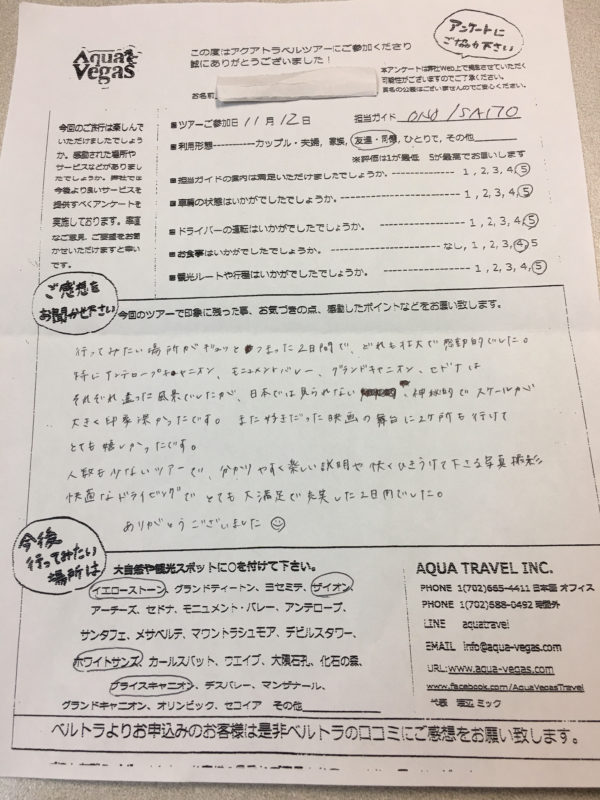 Aqua Vegas
この度はアクアトラベルツアーにご参加くださり
誠にありがとうございました！
アンケートに
ご協力下さい
本アンケートは弊社Web上で掲載させていただく
可能性がございますのでご了承ください。
実名の公表はございませんのでご安心ください。
お名前
今回のご旅行は楽しんで
いただけましたでしょう
か。感動された場所や
サービスなどがありまし
たでしょうか。弊社では
今後より良いサービスを
提供すべくアンケートを
実施しております。率直
なご意見、ご要望をお聞
かせいただけますと幸い
です。
■ツアーご参加日 11月 12日 担当ガイド ONO / SAITO
■利用形態-----------カップル・夫婦, 家族, 友達・同僚, ひとりで, その他
※評価は1が最低 5が最高でお願いします
■担当ガイドの案内は満足いただけましたでしょうか。 1, 2, 3, 4, 5
■車輛の状態はいかがでしたでしょうか。 1, 2, 3, 4, 5
■ドライバーの運転はいかがでしたでしょうか。 1, 2, 3, 4, 5
■お食事はいかがでしたでしょうか。 なし, 1, 2, 3, 4, 5
■観光ルートや行程はいかがでしたでしょうか。 1, 2, 3, 4, 5
ご感想を
お聞かせ下さい
今回のツアーで印象に残った事、お気づきの点、感動したポイントなどをお願い致します。
行ってみたい場所がギュッとつまった2日間で、どれも壮大で感動的でした。
特にアンテロープキャニオン、モニュメントバレー、グランドキャニオン、セドナは
それぞれ違った風景でしたが、日本では見られない 、神秘的でスケールが
大きく印象深かったです。また好きだった映画の舞台に2ヶ所も行けて
とても嬉しかったです。
人数も少ないツアーで、分かりやすく楽しい説明や快くひきうけて下さる写真撮影
快適なドライビングでとても大満足で充実した2日間でした。
ありがとうございました☺
今後
行ってみたい
場所は
大自然や観光スポットに○を付けて下さい。
イエローストーン、グランドティートン、ヨセミテ、ザイオン、
アーチーズ、セドナ、モニュメント・バレー、アンテロープ、
サンタフェ、メサベルデ、マウントラシュモア、デビルスタワー、
ホワイトサンズ、カールスバット、ウエイブ、大隕石孔、化石の森、
ブライスキャニオン、デスバレー、マンザナール、
グランドキャニオン、オリンピック、セコイア その他
AQUA TRAVEL INC.
PHONE 1(702)665-4411 日本語 オフィス
PHONE 1(702)588-0492 時間外
LINE aquatravel
EMAIL info@aqua-vegas.com
URL:www.aqua-vegas.com
www.facebook.com/AquaVegasTravel
代表 渡辺 ミック
ベルトラよりお申込みのお客様は是非ベルトラの口コミにご感想をお願い致します。